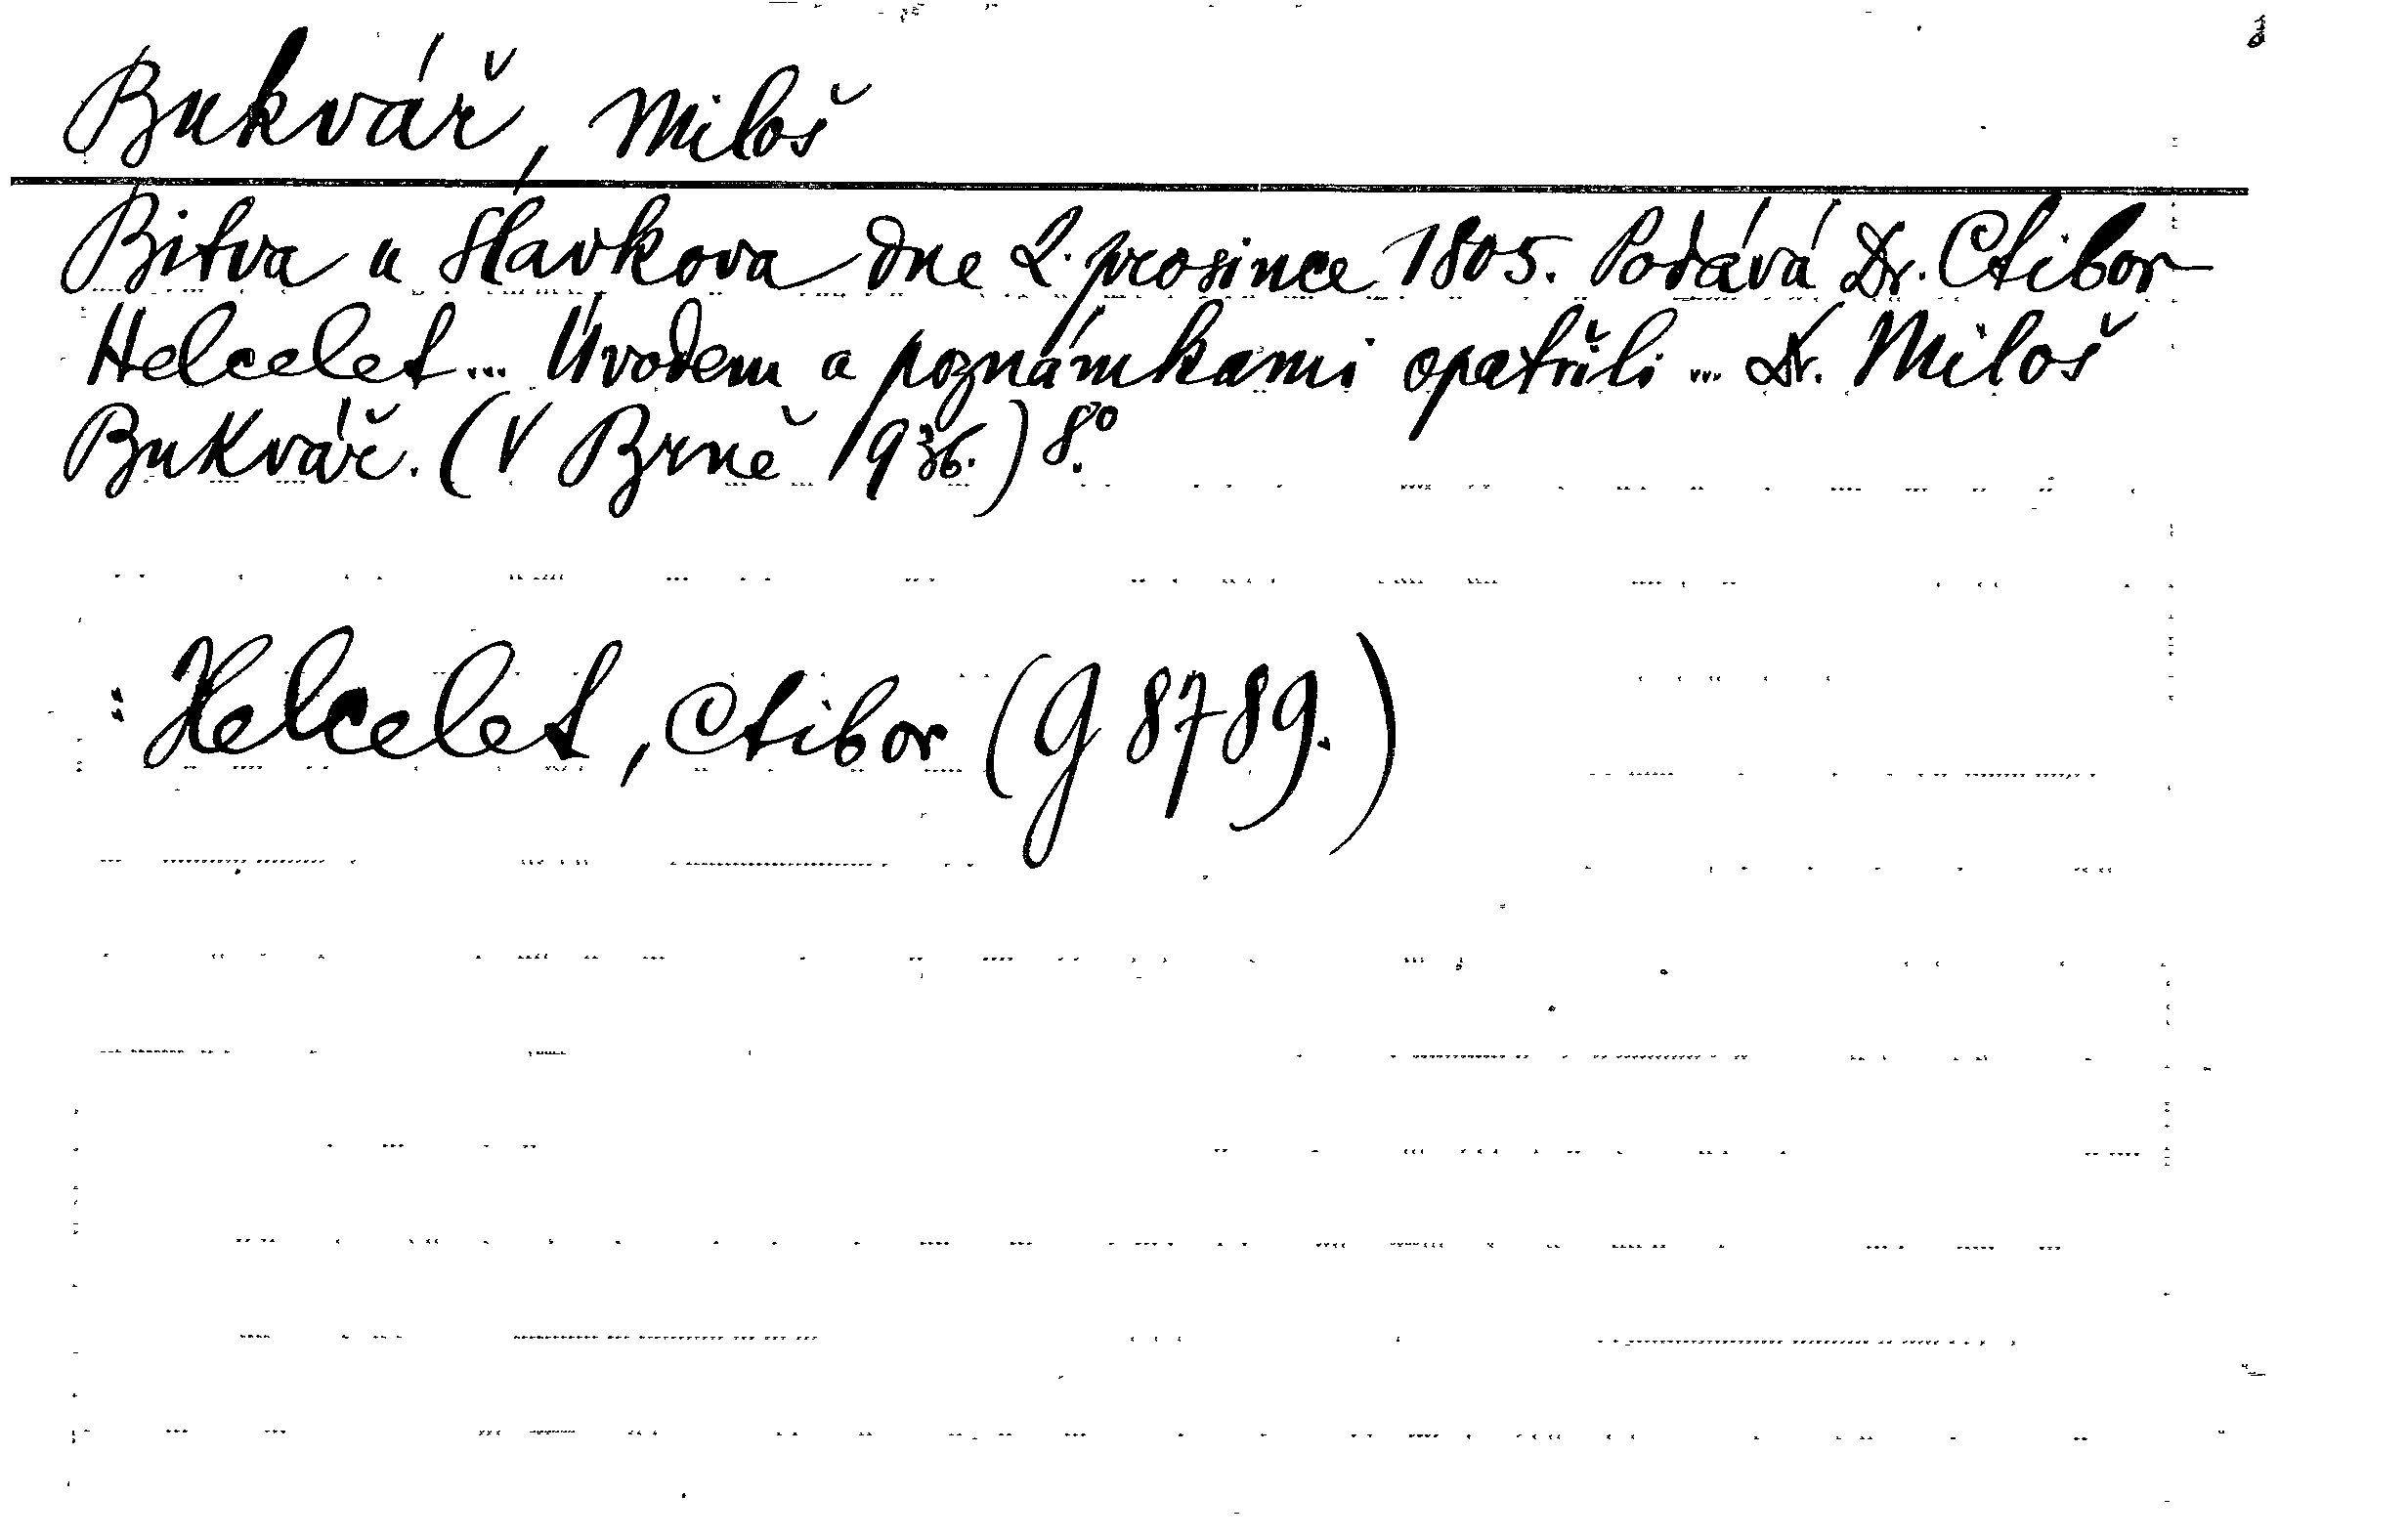 Bukvář, Miloš
Bitva u Slavkova dne 2. prosince 1805. Podává Dr. Ctibor
Helcelet... Úvodem a poznámkami opatřili... Dr. Miloš
Bukvář. (V Brně 1936.) 8°.
: Helcelet, Ctibor (G 8789.)